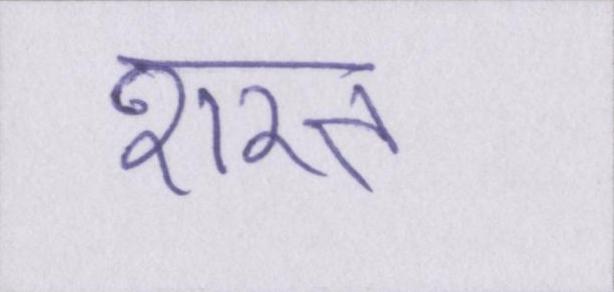 शरत